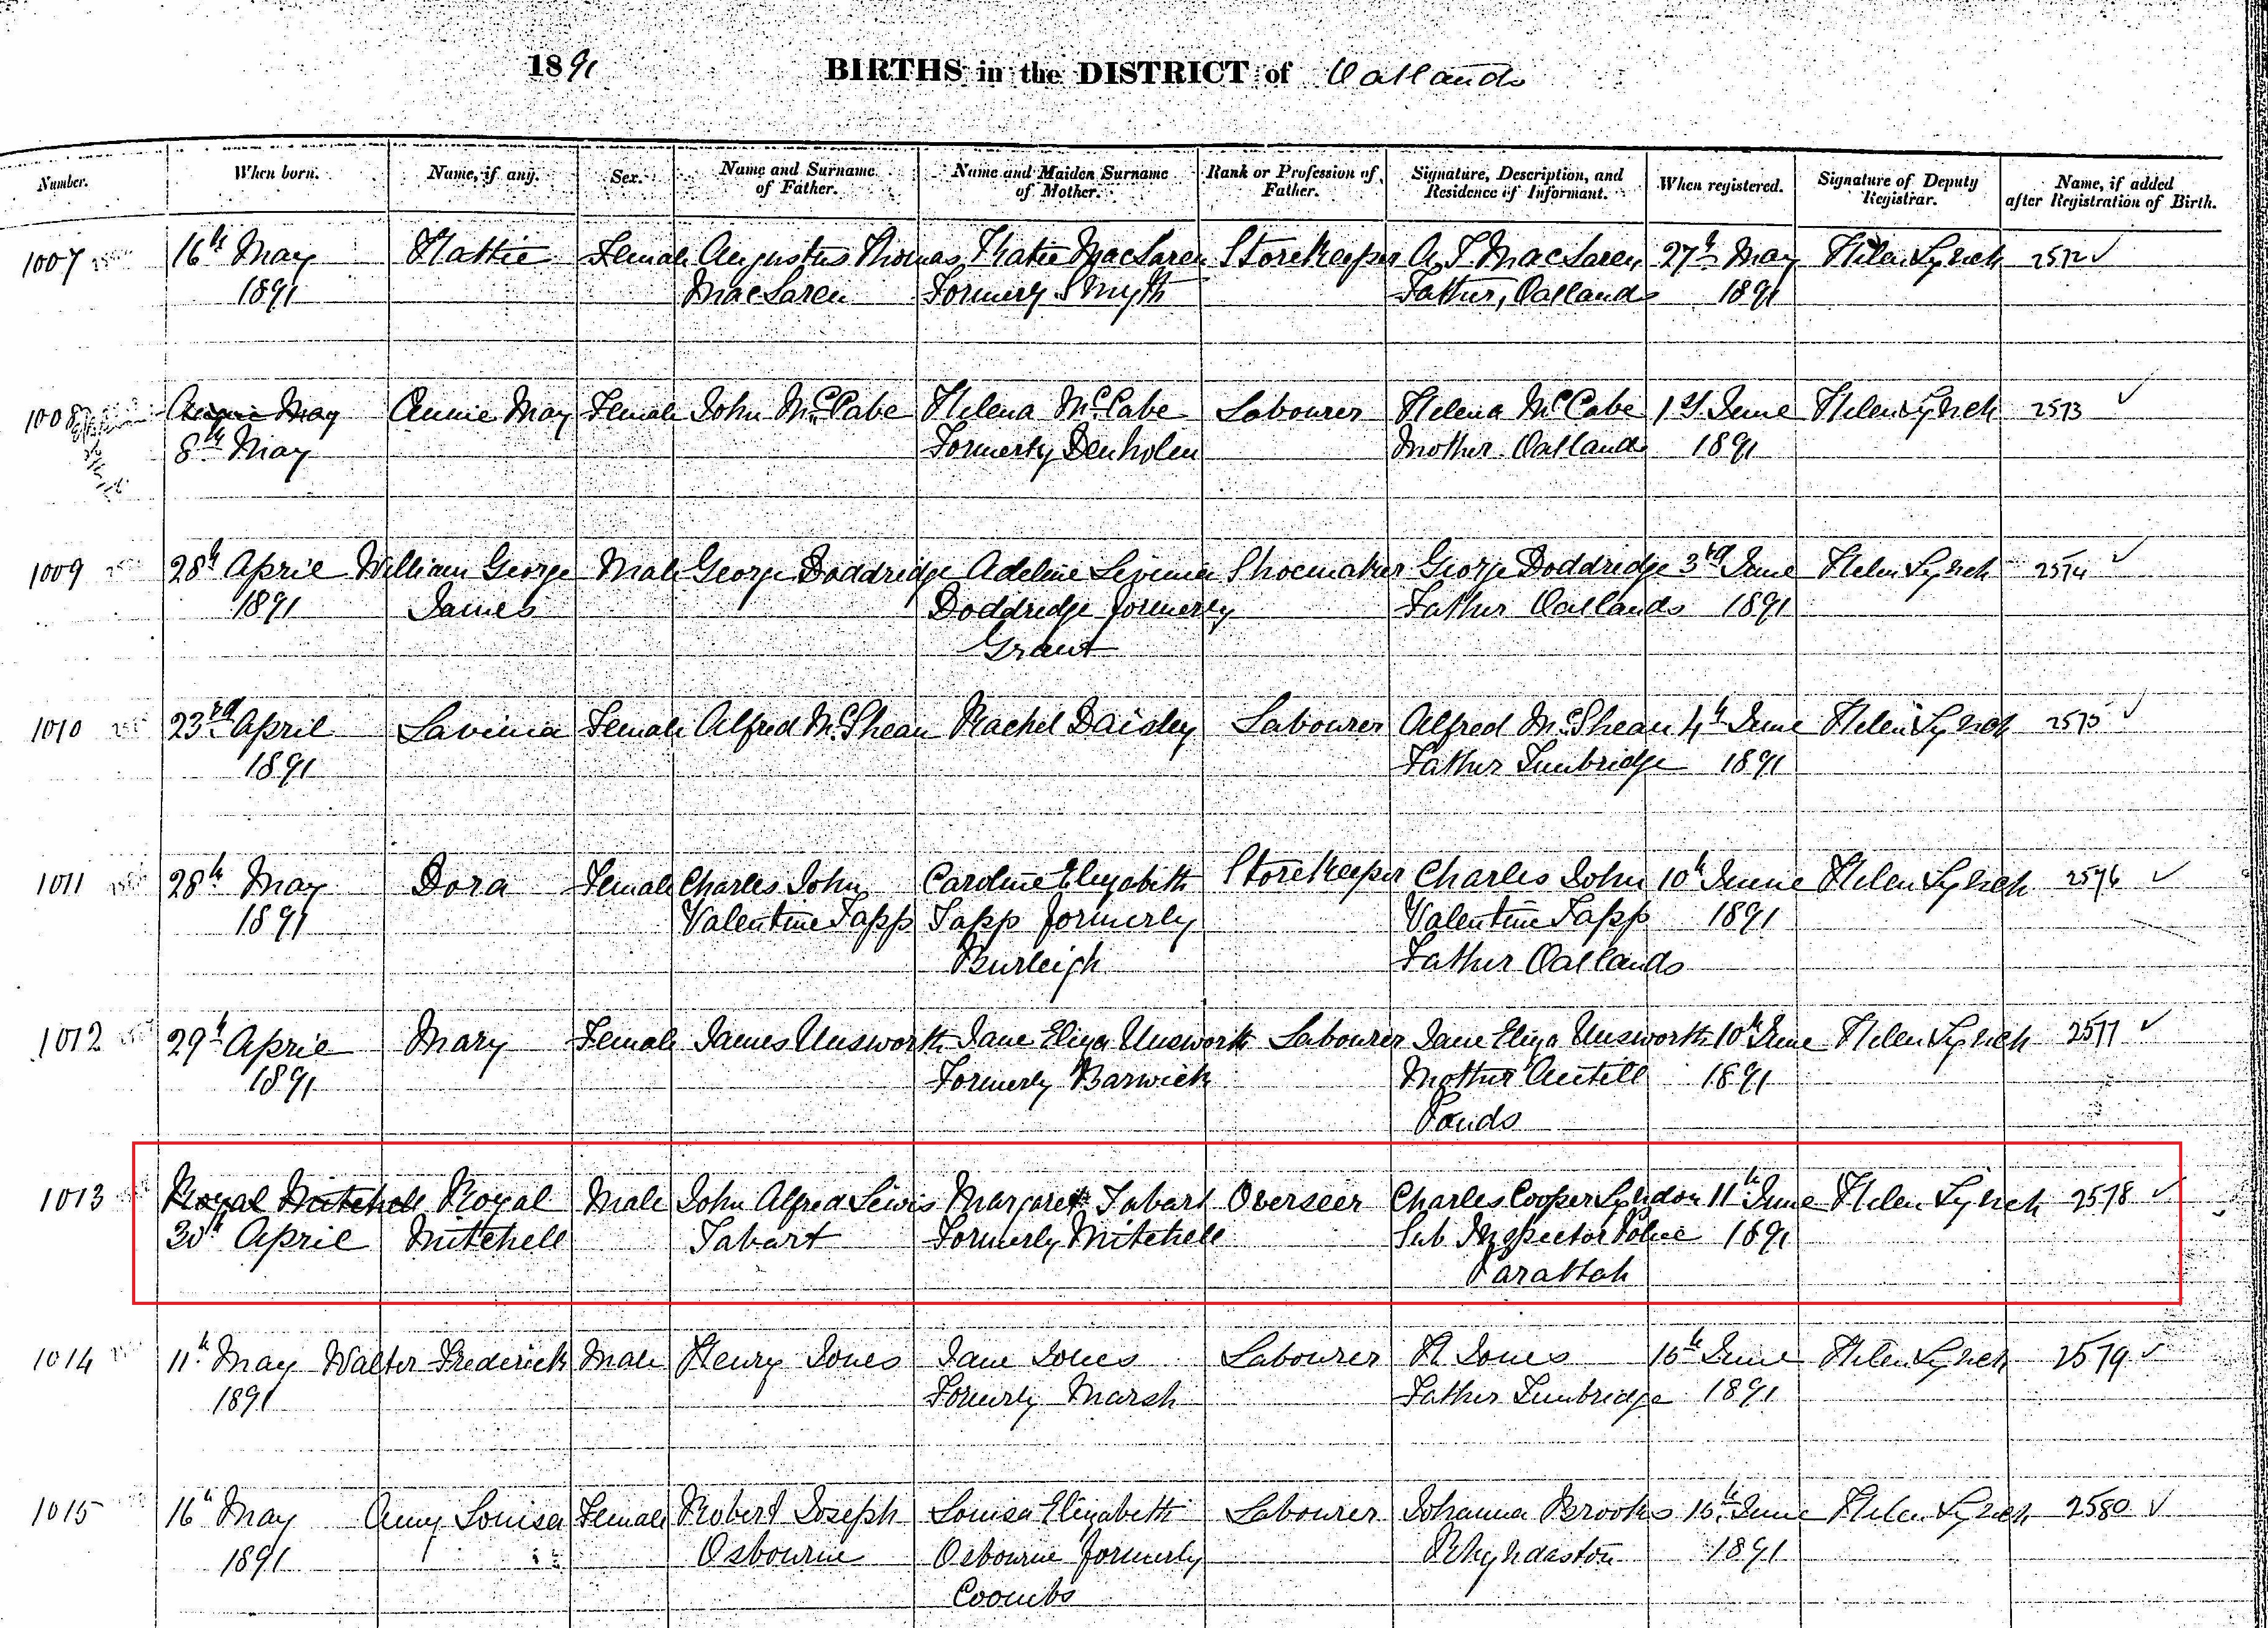 1891 BIRTHS in the DISTRICT of Oatlands
Number. When born. Name, if any. Sex. Name and Surname of Father. Name and Maiden Surname of Mother. Rank or Profession of Father. Signature, Description, and Residence of Informant. When registered. Signature of Deputy Registrar. Name, if added after Registration of Birth.
1007 16th May Hattie Female Augustus Thomas Katie MacLaren Storekeeper A. T. MacLaren 27th May Helen Lynch 2572
1891 MacLaren Formerly Smyth Father, Oatlands 1891
1008 Annie May Annie May Female John McCabe Helena McCabe Labourer Helena McCabe 1st June Helen Lynch 2573
8th May Formerly Denholm Mother Oatlands 1891
1009 28th April William George Male George Doddridge Adeline Levinia Shoemaker George Doddridge 3rd June Helen Lynch 2574
1891 James Doddridge formerly Father Oatlands 1891
Grant
1010 23rd April Lavinia Female Alfred McShean Rachel Daisley Labourer Alfred McShean 4th June Helen Lynch 2575
1891 Father Tunbridge 1891
1011 28th May Dora Female Charles John Caroline Elizabeth Storekeeper Charles John 10th June Helen Lynch 2576
1891 Valentine Tapp Tapp formerly Valentine Tapp 1891
Burleigh Father Oatlands
1012 29th April Mary Female James Unsworth Jane Eliza Unsworth Labourer Jane Eliza Unsworth 10th June Helen Lynch 2577
1891 Formerly Barwick Mother Antill 1891
Ponds
1013 Royal Mitchell Royal Male John Alfred Lewis Margaret Tabart Overseer Charles Cooper 11th June Helen Lynch 2578
30th April Mitchell Tabart Formerly Mitchell Sub Inspector Police 1891
Parattah
1014 11th May Walter Frederick Male Henry Jones Jane Jones Labourer H Jones 15th June Helen Lynch 2579
1891 Formerly Marsh Father Tunbridge 1891
1015 16th May Amy Louisa Female Robert Joseph Louisa Elizabeth Labourer Johanna Brooks 15th June Helen Lynch 2580
1891 Osbourne Osbourne formerly 1891
Coombs